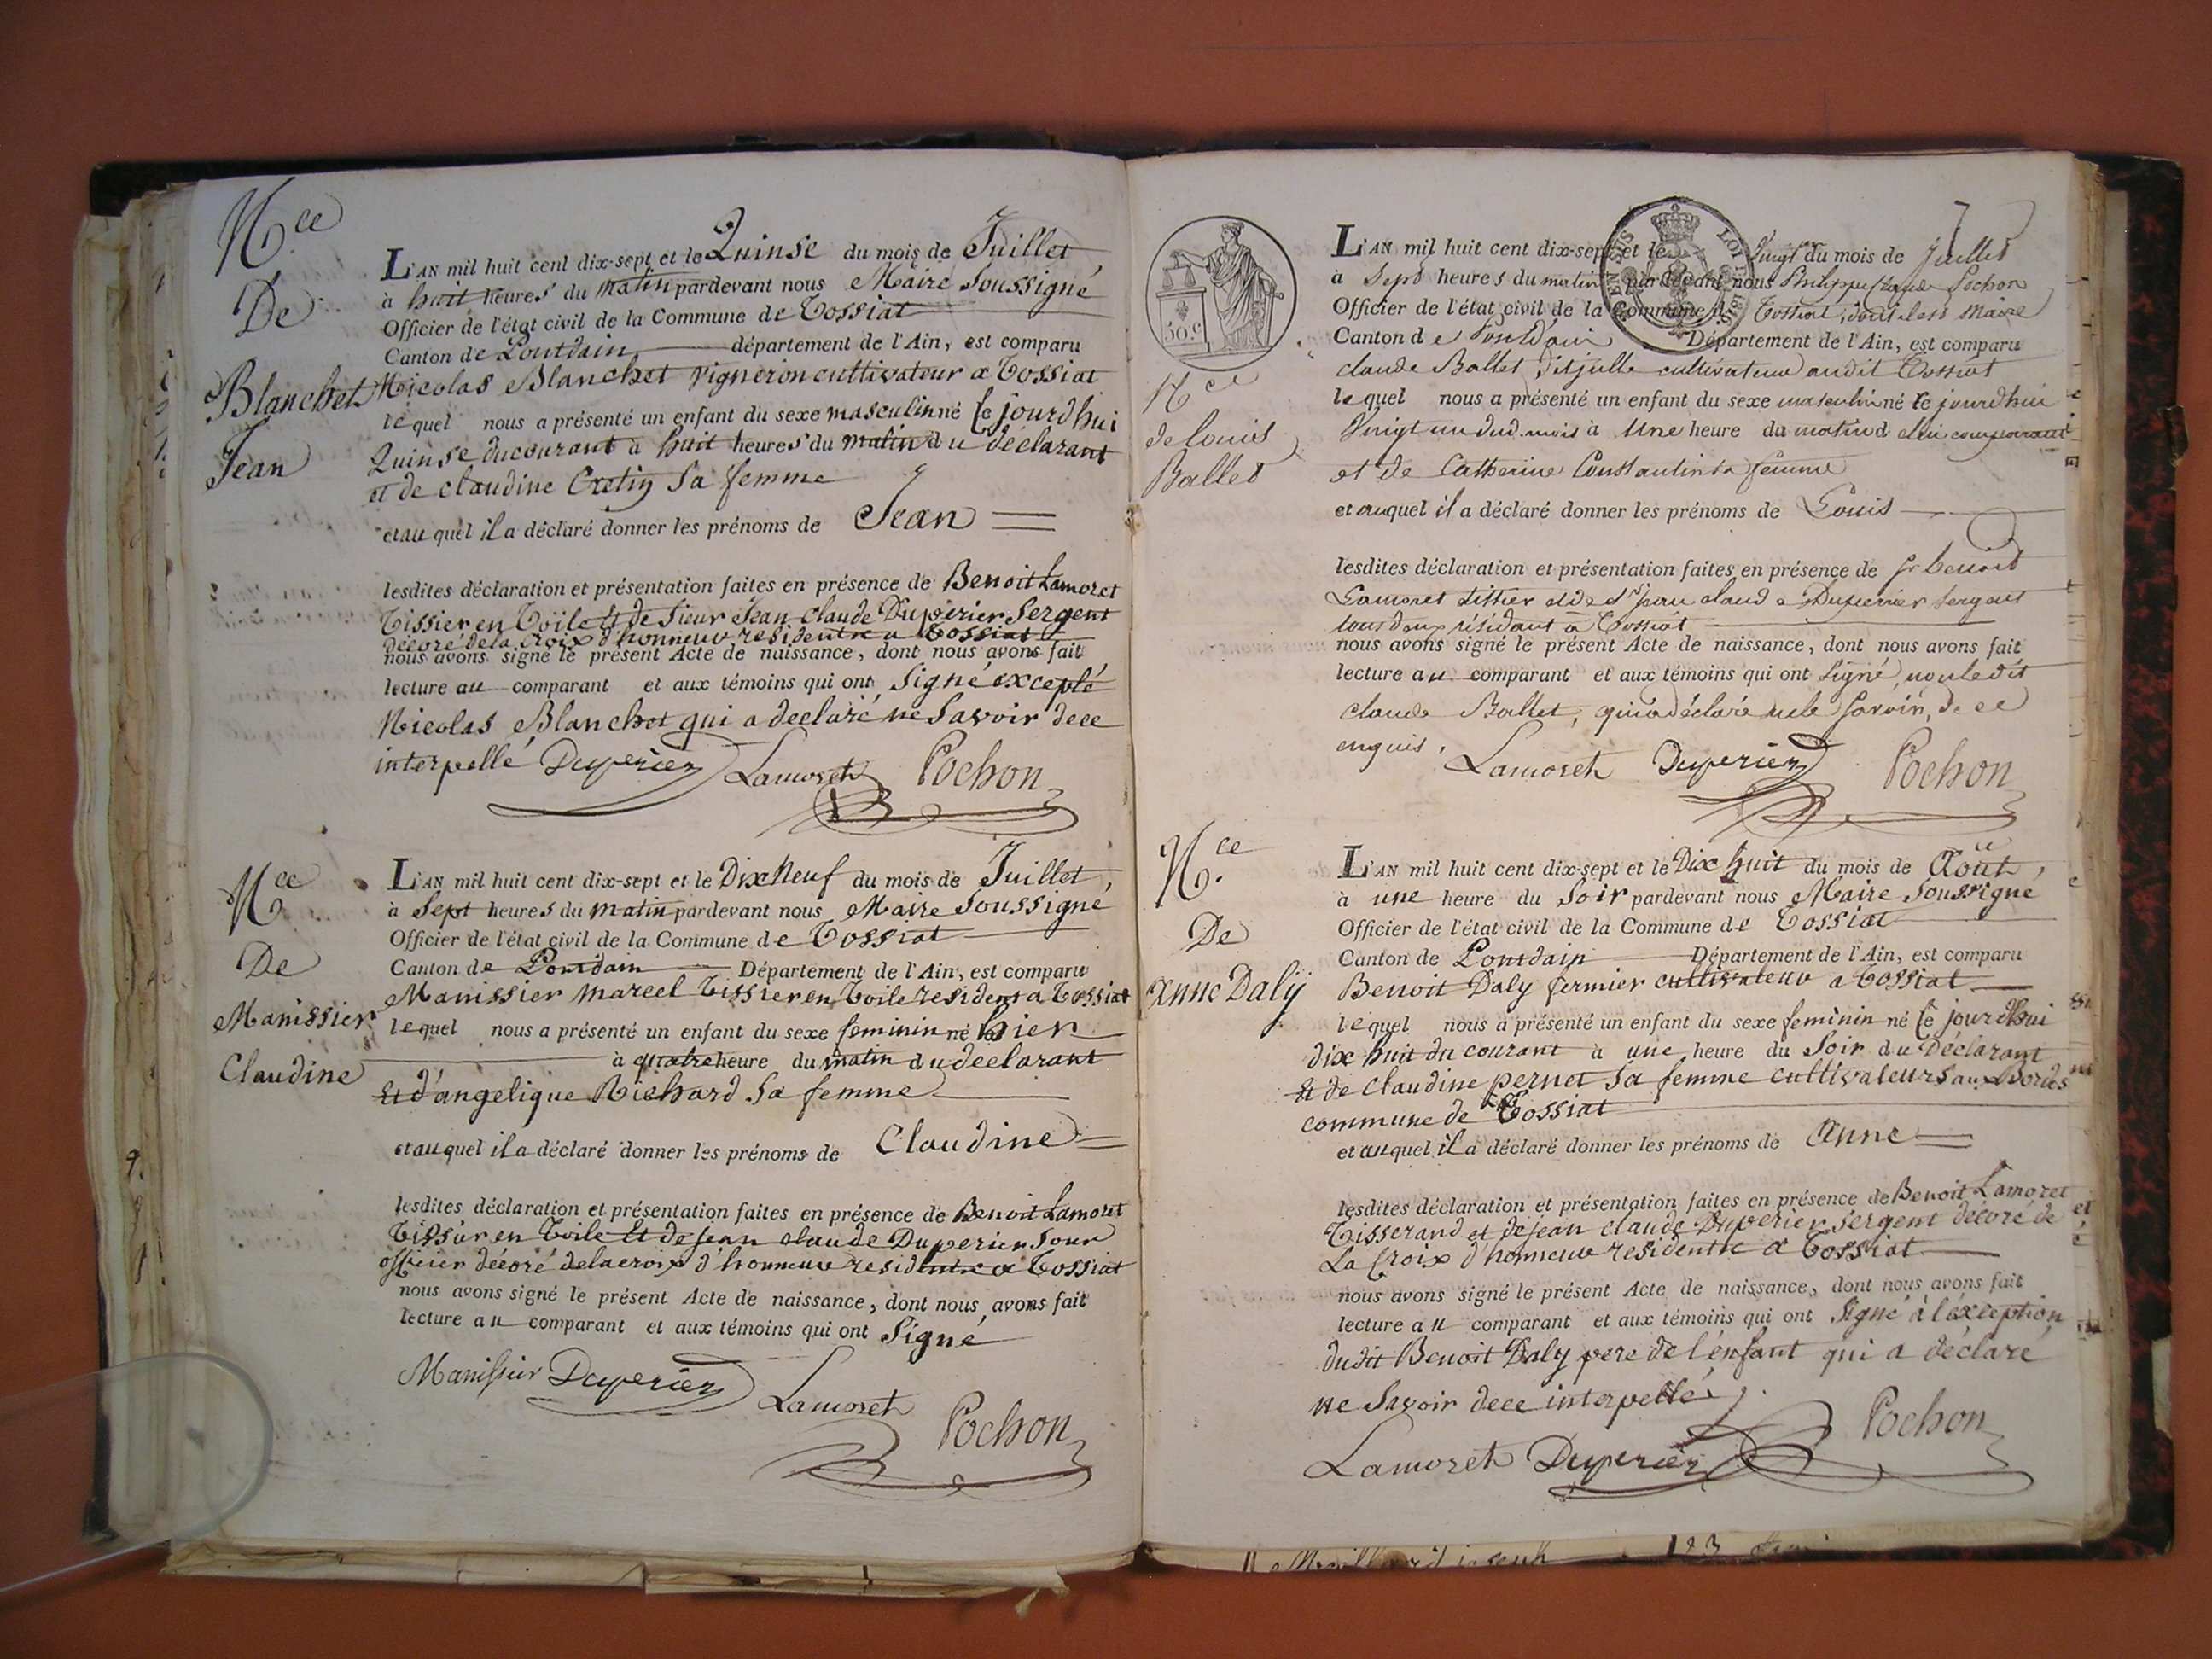 Nce
De
Blanchet
Jean
L'AN mil huit cent dix-sept et le Quinse du mois de Juillet
à huit heures du matin pardevant nous Maire Soussigné
Officier de l'état civil de la Commune de Tossiat
Canton de Pontdain département de l'Ain, est comparu
Nicolas Blanchet vigneron cultivateur a Tossiat
lequel nous a présenté un enfant du sexe masculin né le jourdhui
Quinse ducourant à huit heures du matin du déclarant
et de claudine Cretin Sa femme
et au quel il a déclaré donner les prénoms de Jean
lesdites déclaration et présentation faites en présence de Benoit Lamoret
Tissier en Toile et de Sieur Jean Claude Duperier Sergent
décoré de la Croix d'honneur residentre a Tossiat
nous avons signé le présent Acte de naissance, dont nous avons fait
lecture au comparant et aux témoins qui ont Signé excepté
Nicolas Blanchet qui a declaré ne Savoir dece
interpellé Duperier Lamoret Pochon
Nce
De
Manissier
Claudine
L'AN mil huit cent dix-sept et le Dix Neuf du mois de Juillet
à Sept heures du matin pardevant nous Maire Soussigné
Officier de l'état civil de la Commune de Tossiat
Canton de Pontdain Département de l'Ain, est comparu
Manissier Marcel Tissier en Toile resident a Tossiat
lequel nous a présenté un enfant du sexe feminin né hier
à quatre heure du matin du declarant
Et d'angelique Richard Sa femme
et au quel il a déclaré donner les prénoms de Claudine
lesdites déclaration et présentation faites en présence de Benoit Lamoret
Tissür en Toile Et de Jean claude Duperier Sour
officier décoré delacroix d'honneur residentre a Tossiat
nous avons signé le présent Acte de naissance, dont nous avons fait
lecture au comparant et aux témoins qui ont Signé
Manissier Duperier Lamoret Pochon
50 c
LOI
7
Nce
de louis
Ballet
L'AN mil huit cent dix-sept et le Vingt un du mois de juillet
à Sept heures du matin pardevant nous Philippe Claude Pochon
Officier de l'état civil de la Commune de Tossiat
Canton de Pontdain Département de l'Ain, est comparu
claude Ballet, dit julle cultivateur audit Tossiat
lequel nous a présenté un enfant du sexe masculin né le jourdhui
Vingt un dud. mois à Une heure du matin d elui comparant
et de Catherine Constantin sa femme
et auquel il a déclaré donner les prénoms de Louis
lesdites déclaration et présentation faites en présence de Sr benoit
Lamoret tissier et de Sr jean claude Duperier Sergent
tous deux résidant a Tossiat
nous avons signé le présent Acte de naissance, dont nous avons fait
lecture au comparant et aux témoins qui ont Signé, non ledit
claude Ballet, qui a déclaré ne le Savoir, de ce
enquis. Lamoret Duperier Pochon
Nce
De
Anne Daly
L'AN mil huit cent dix-sept et le Dix huit du mois de Aoüt
à une heure du Soir pardevant nous Maire Soussigné
Officier de l'état civil de la Commune de Tossiat
Canton de Pontdain Département de l'Ain, est comparu
Benoit Daly fermier cultivateur a Tossiat
lequel nous a présenté un enfant du sexe feminin né le jourdhui
dix huit du courant à une heure du Soir du Déclarant
Et de Claudine pernet Sa femme cultivateurs aux Bordes
commune de Tossiat
et auquel il a déclaré donner les prénoms de Anne
lesdites déclaration et présentation faites en présence de Benoit Lamoret
Tisserand et de jean claude Duperier Sergent décoré de
La Croix d'honneur residentre a Tossiat
nous avons signé le présent Acte de naissance, dont nous avons fait
lecture au comparant et aux témoins qui ont Signé à l'exception
dudit Benoit Daly pere de l'énfant qui a déclaré
ne Savoir dece interpellé
Lamoret Duperier Pochon